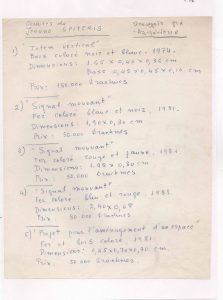 Oeuvres de
Jeanne SPITERIS
1) "Totem vertical"
Bois coloré noir et blanc. 1974.
Dimensions: 1.65 x 0,40 x 0,30 cm
Base 0,45 x 0,45 x 0,10 cm
Prix: 150.000 drachmes
2) "Signal mouvant"
Fer coloré blanc et noir, 1981.
Dimensions: 1,90 x 0,30 cm
Prix: 50.000 drachmes
3) "Signal mouvant"
Fer coloré rouge et jaune, 1981.
Dimensions: 1,98 x 0,30 cm
Prix 50.000 drachmes
4) "Signal mouvant"
Fer coloré bleu et rouge, 1981.
Dimensions: 2,40 x 0,08
Prix 50.000 drachmes
5) "Projet pour l'aménagement d'un espace
Fer et bois coloré, 1981.
Dimensions: 0,45 x 0,30 x 0,30 cm.
Prix: 50.000 drachmes.